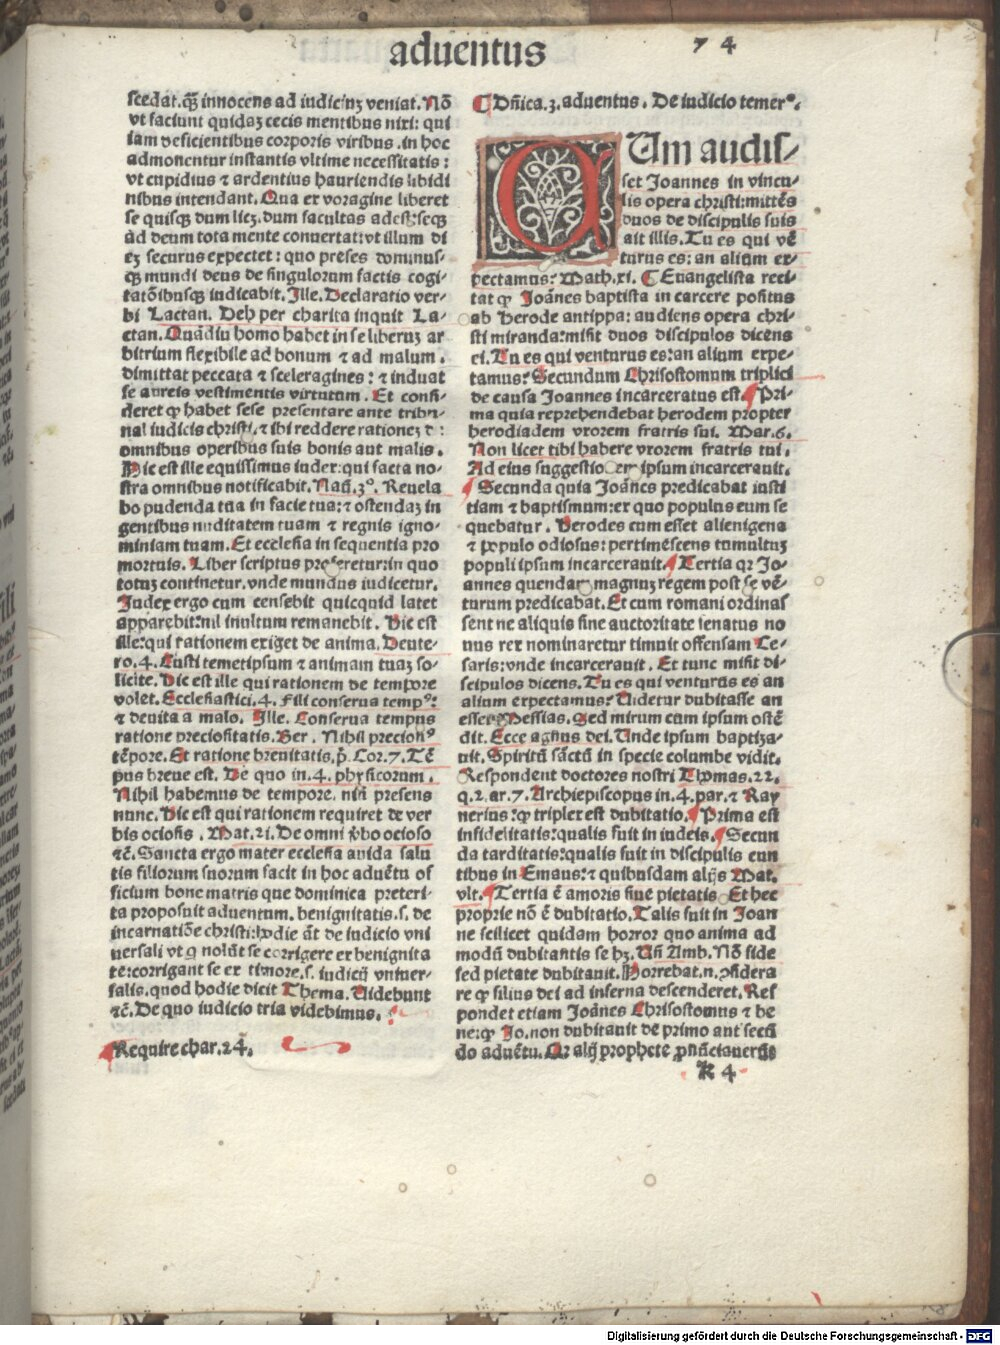 aduentus 74
scedat.qȝ innocens ad iudiciuȝ veniat. Nō
vt faciunt quidaȝ cecis mentibus nixi: qui
iam deficientibus corporis viribus.in hoc
admonentur instantis vltime necessitatis:
vt cupidius ⁊ ardentius hauriendis libidi
nibus intendant. Qua ex voragine liberet
se quisqȝ dum licȝ.dum facultas adest:seqȝ
ad deum tota mente conuertat:vt illum di
eȝ securus expectet: quo preses dominus-
qȝ mundi deus de singulorum factis cogi
tatōibusqȝ iudicabit. Ille. Declaratio ver-
bi Lactan. Deh per charita inquit La-
ctan. Quādiu homo habet in se liberuȝ ar
bitrium flexibile ad bonum ⁊ ad malum.
dimittat peccata ⁊ sceleragines: ⁊ induat
se aureis vestimentis virtutum. Et consi-
deret qꝫ habet sese presentare ante tribu-
nal iudicis christi, ⁊ ibi reddere rationeȝ d:
omnibus operibus suis bonis aut malis.
Hic est ille equissimus iudex:qui facta no-
stra omnibus notificabit. Naū.3º. Reuela
bo pudenda tua in facie tua:⁊ ostendaȝ in
gentibus nuditatem tuam ⁊ regnis igno-
miniam tuam. Et ecclesia in sequentia pro
mortuis. Liber scriptus proferetur:in quo
totuȝ continetur.vnde mundus iudicetur.
Judex ergo cum censebit quicquid latet
apparebit:nil inultum remanebit. Hic est
ille:qui rationem exiget de anima. Deute-
ro.4. Custi temetipsum ⁊ animam tuaȝ so-
licite. Hic est ille qui rationem de tempore
volet. Ecclesiastici.4. Fili conserua tempº:
⁊ deuita a malo. Ille. Conserua tempus
ratione preciositatis. Ber. Nihil preciosiº
tēpore. Et ratione breuitatis.p̄. Cor.7. Tē
pus breue est. De quo in.4. physicorum.
Nihil habemus de tempore. nisi presens
nunc. Hic est qui rationem requiret de ver
bis ociosis. Mat.2i. De omni ꝟbo ocioso
⁊c̄. Sancta ergo mater ecclesia auida salu
tis filiorum suorum facit in hoc aduētu of
ficium bone matris que dominica preteri-
ta proposuit aduentum. benignitatis.s. de
incarnatiōe christi:hodie āt de iudicio vni
uersali vt q̄ nolūt se corrigere ex benignita
te:corrigant se ex timore.s. iudicij vniuer-
salis.quod hodie dicit Thema. Uidebunt
⁊c̄. De quo iudicio tria videbimus.
Require char.24.
¶ Dn̄ica.3. aduentus. De iudicio temerº.
CUm audis-
set Joannes in vincu-
lis opera christi:mittēs
duos de discipulis suis
ait illis. Tu es qui vē
turus es: an alium ex-
pectamus: Math.xi. ¶ Euangelista reci-
tat qꝫ Joānes baptista in carcere positus
ab Herode antippa: audiens opera chri-
sti miranda:misit duos discipulos dicens
ei. Tu es qui venturus es:an alium expe-
tamus: Secundum Chrisostomum triplici
de causa Joannes incarceratus est. ¶ Pri-
ma quia reprehendebat herodem propter
herodiadem vxorem fratris sui. Mar.6.
Non licet tibi habere vxorem fratris tui.
Ad eius suggestionem ipsum incarcerauit.
¶ Secunda quia Joānes predicabat iusti
tiam ⁊ baptismum:ex quo populus eum se
quebatur. Herodes cum esset alienigena
⁊ populo odiosus: pertimēscens tumultuȝ
populi ipsum incarcerauit. ¶ Tertia qꝛ Jo-
annes quendam magnuȝ regem post se vē-
turum predicabat. Et cum romani ordinas
sent ne aliquis sine auctoritate senatus no
uus rex nominaretur timuit offensam Ce-
saris:vnde incarcerauit. Et tunc misit di-
scipulos dicens. Tu es qui venturus es an
alium expectamus? Uidetur dubitasse an
esset Messias. Sed mirum cum ipsum ostē
dit. Ecce agnus dei. Unde ipsum baptiza-
uit. Spiritū sāctū in specie columbe vidit.
Respondent doctores nostri Thomas.22.
q.2.ar.7. Archiepiscopus in.4.par.⁊ Ray
nerius:qꝫ triplex est dubitatio. ¶ Prima est
infidelitatis:qualis fuit in iudeis. ¶ Secun
da tarditatis:qualis fuit in discipulis eun
tibus in Emaus:⁊ quibusdam alijs Mat.
vlt. ¶ Tertia ē amoris siue pietatis. Et hec
proprie nō ē dubitatio. Talis fuit in Joan
ne scilicet quidam horror quo anima ad
modū dubitantis se hȝ. Uñ Amb. Nō fide
sed pietate dubitauit. Horrebat.n. ↄsidera
re qꝫ filius dei ad inferna descenderet. Res
pondet etiam Joānes Chrisostomus ⁊ be
ne:qꝫ Jo.non dubitauit de primo aut secū
do aduētu. Qꝛ alij prophete ꝓnūciauerūt
K 4
Digitalisierung gefördert durch die Deutsche Forschungsgemeinschaft - DFG